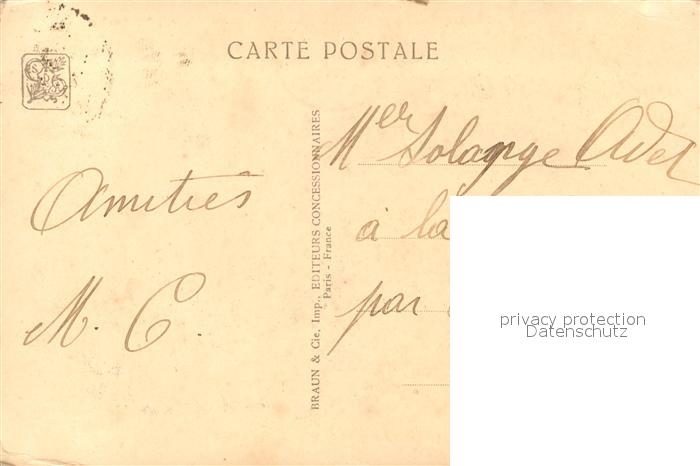 CARTE POSTALE
Amitiés
M. C
BRAUN & Cie, Imp., EDITEURS CONCESSIONNAIRES
Paris - France
Melle Solange Adel
à la
par
privacy protection
Datenschutz